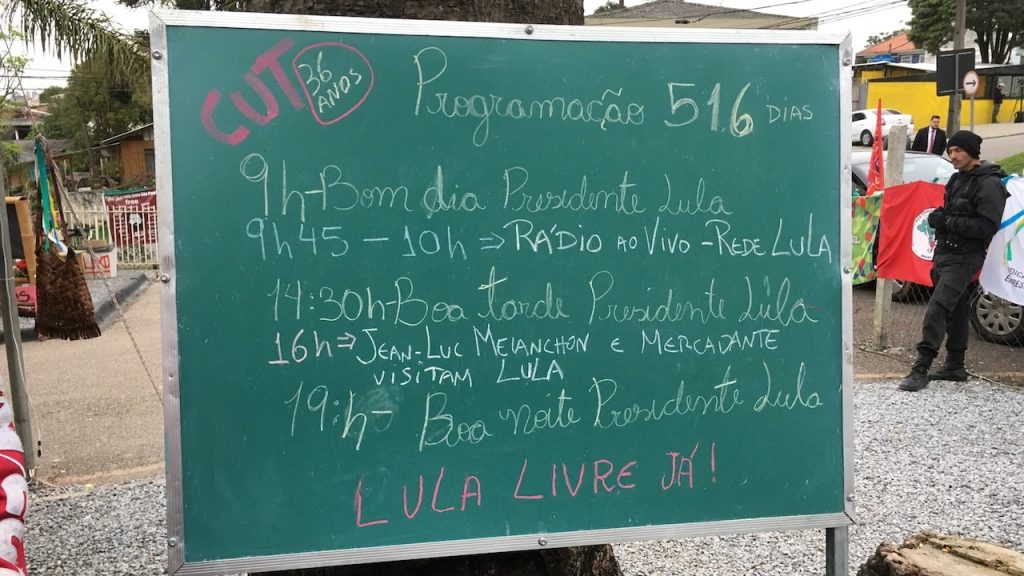 CUT
36 ANOS
Programação 516 DIAS
9h-Bom dia Presidente Lula
9h45 - 10h ⇒ RÁDIO AO VIVO - REDE LULA
14:30h-Boa tarde Presidente Lula
16h ⇒ JEAN-LUC MELANCHON E MERCADANTE
VISITAM LULA
19:h- Boa noite Presidente Lula
LULA LIVRE JÁ!
free